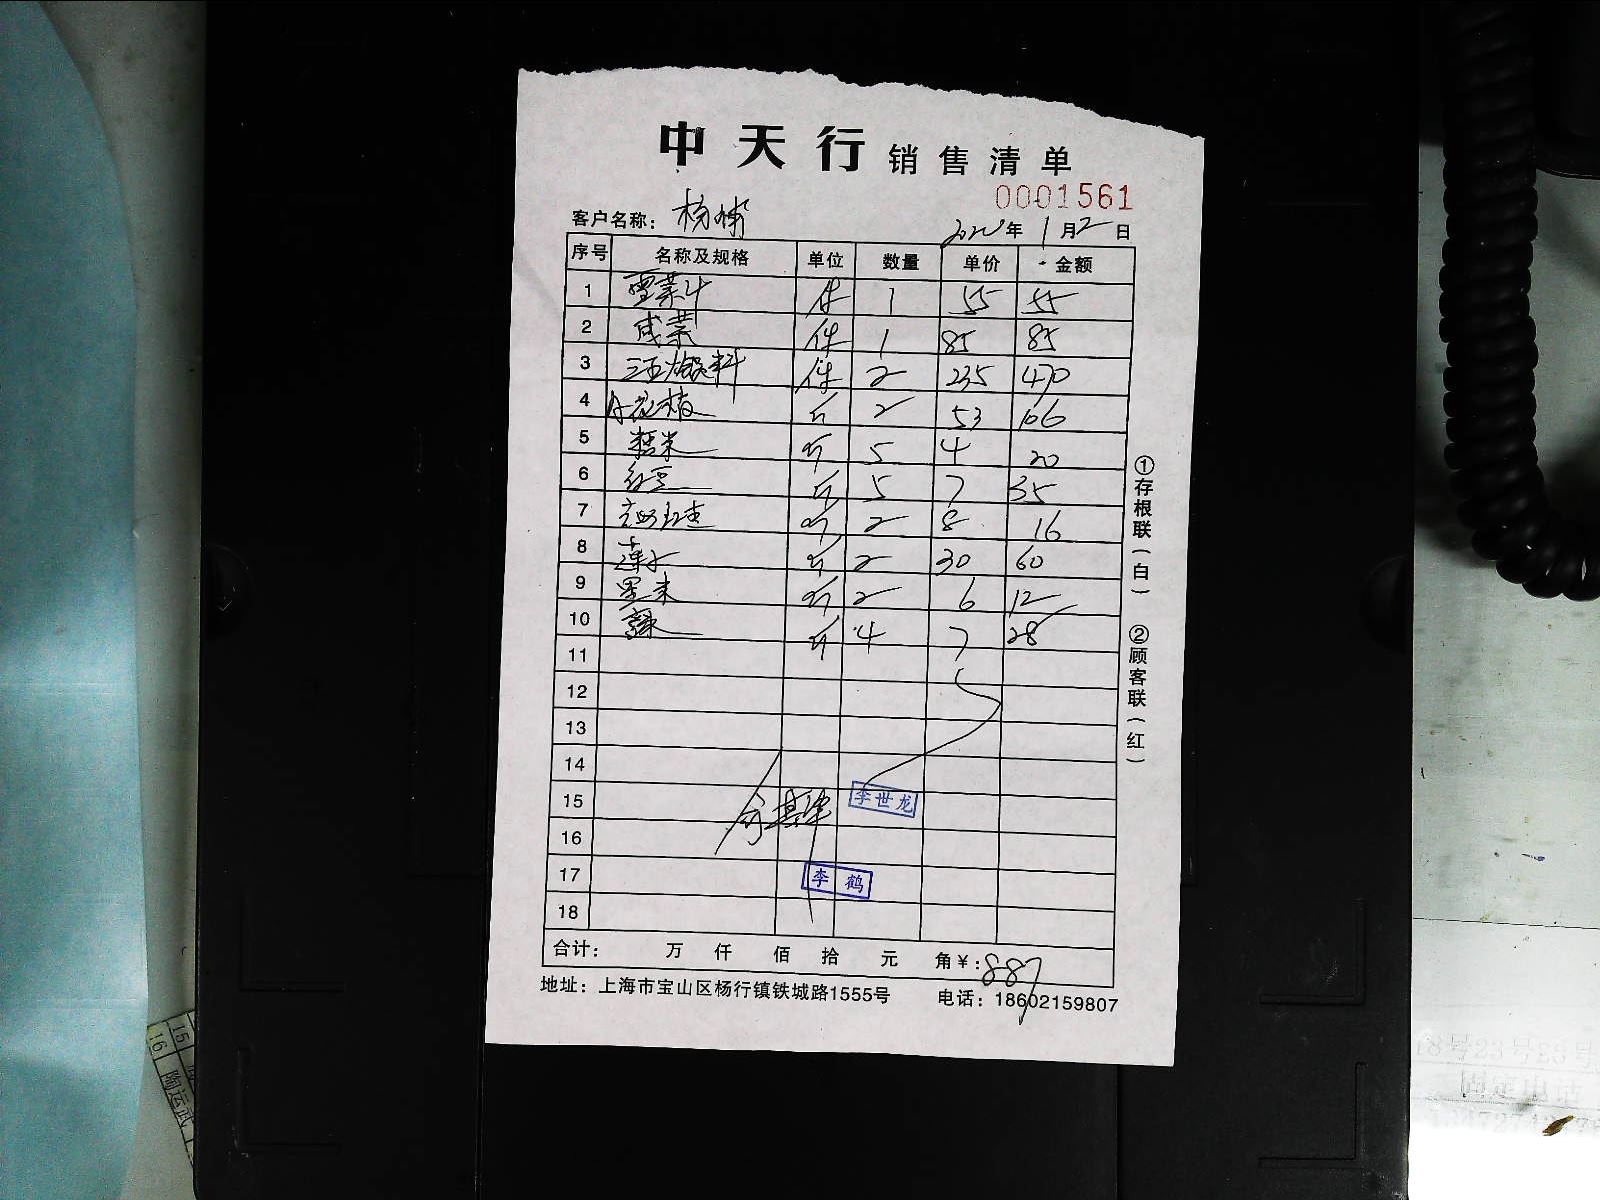 中天行 销售清单
0001561
客户名称: 杨
年 1月2日
序号 名称及规格 单位 数量 单价 金额
1 雪菜 件 1 55 55
2 咸菜 件 1 85 85
3 火锅料 件 2 235 470
4 花枝 斤 2 53 106
5 糯米 斤 5 4 20
6 红豆 斤 5 7 35
7 斤 2 8 16
8 莲子 斤 2 30 60
9 黑米 斤 2 6 12
10 斤 4 7 28
11
12
13
14
15 李世龙
16
17 李鹤
18
合计: 万 仟 佰 拾 元 角 ¥:887
地址:上海市宝山区杨行镇铁城路1555号 电话:18602159807
①存根联(白)
②顾客联(红)
15
16 陶运武